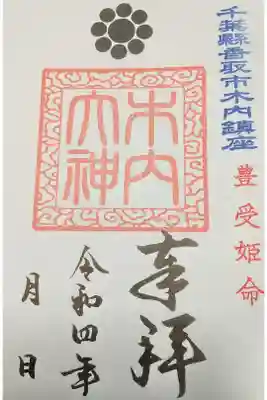 千葉縣香取市木内鎮座
豊受姫命
木内
大神
奉拝
令和四年
月
日